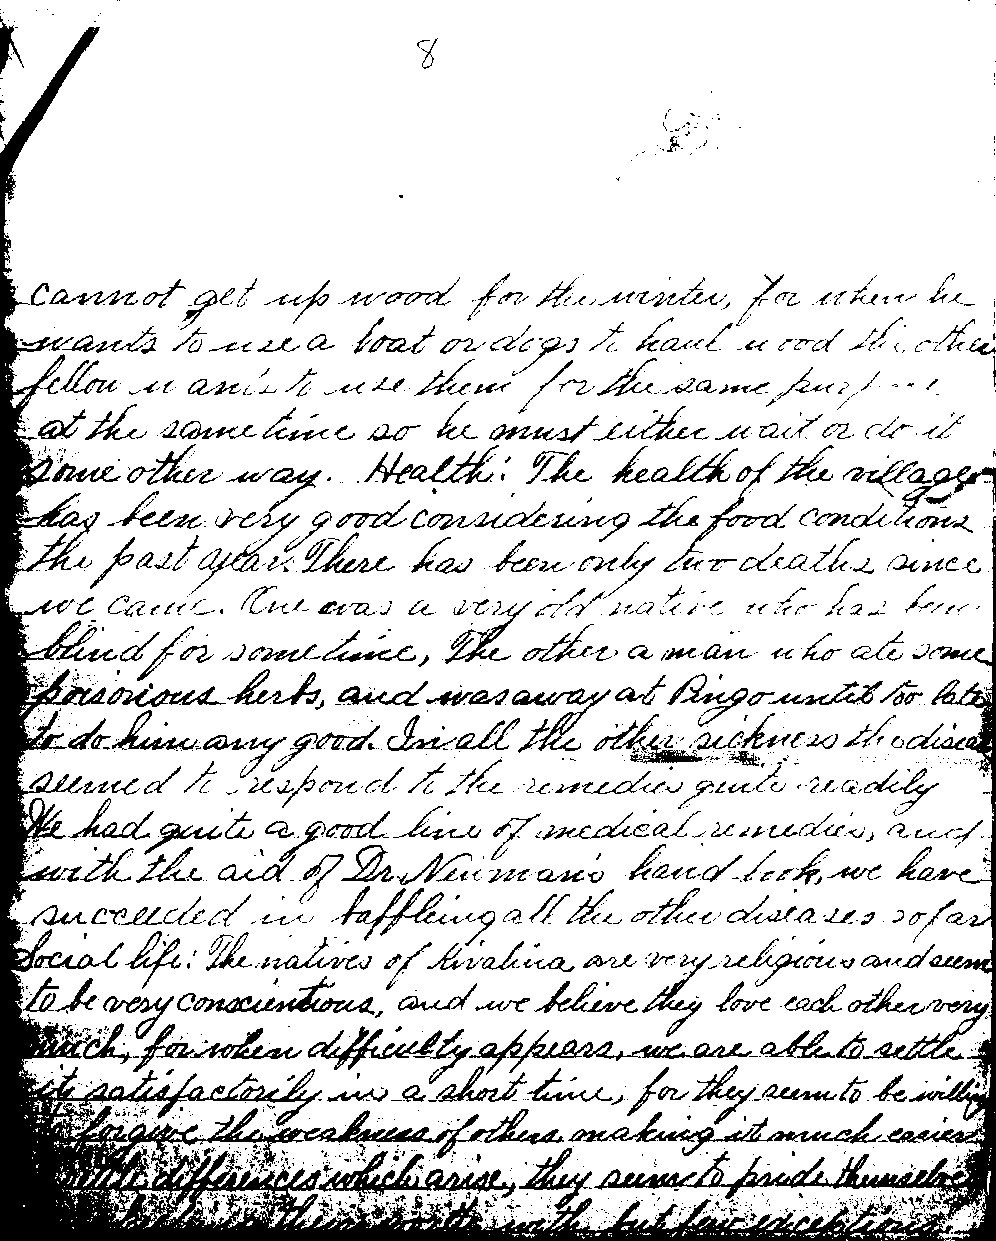 8
cannot get up wood for the winter, for when he
wants to use a boat or dogs to haul wood the other
fellow wants to use them for the same
at the same time so he must either wait or do it
some other way. Health: The health of the village
has been very good considering the food conditions
the past year. There has been only two deaths since
we came. One was a very old native who has been
blind for sometime, The other a man who ate some
poisonous herbs, and was away at Pingo until too late
to do him any good. In all the other sickness the
seemed to respond to the remedies quite readily
We had quite a good line of medical remedies, and
with the aid of Dr. Newman's hand book, we have
succeeded in baffleing all the other diseases so far
Social life: The natives of Kivalina are very religious and seem
to be very conscientious, and we believe they love each other very
much, for when difficulty appears, we are able to settle
it satisfactorily in a short time, for they seem to be willing
forgive the weakness of others making it much easier
differences which arise, they seem to pride themselves
with but few exceptions.